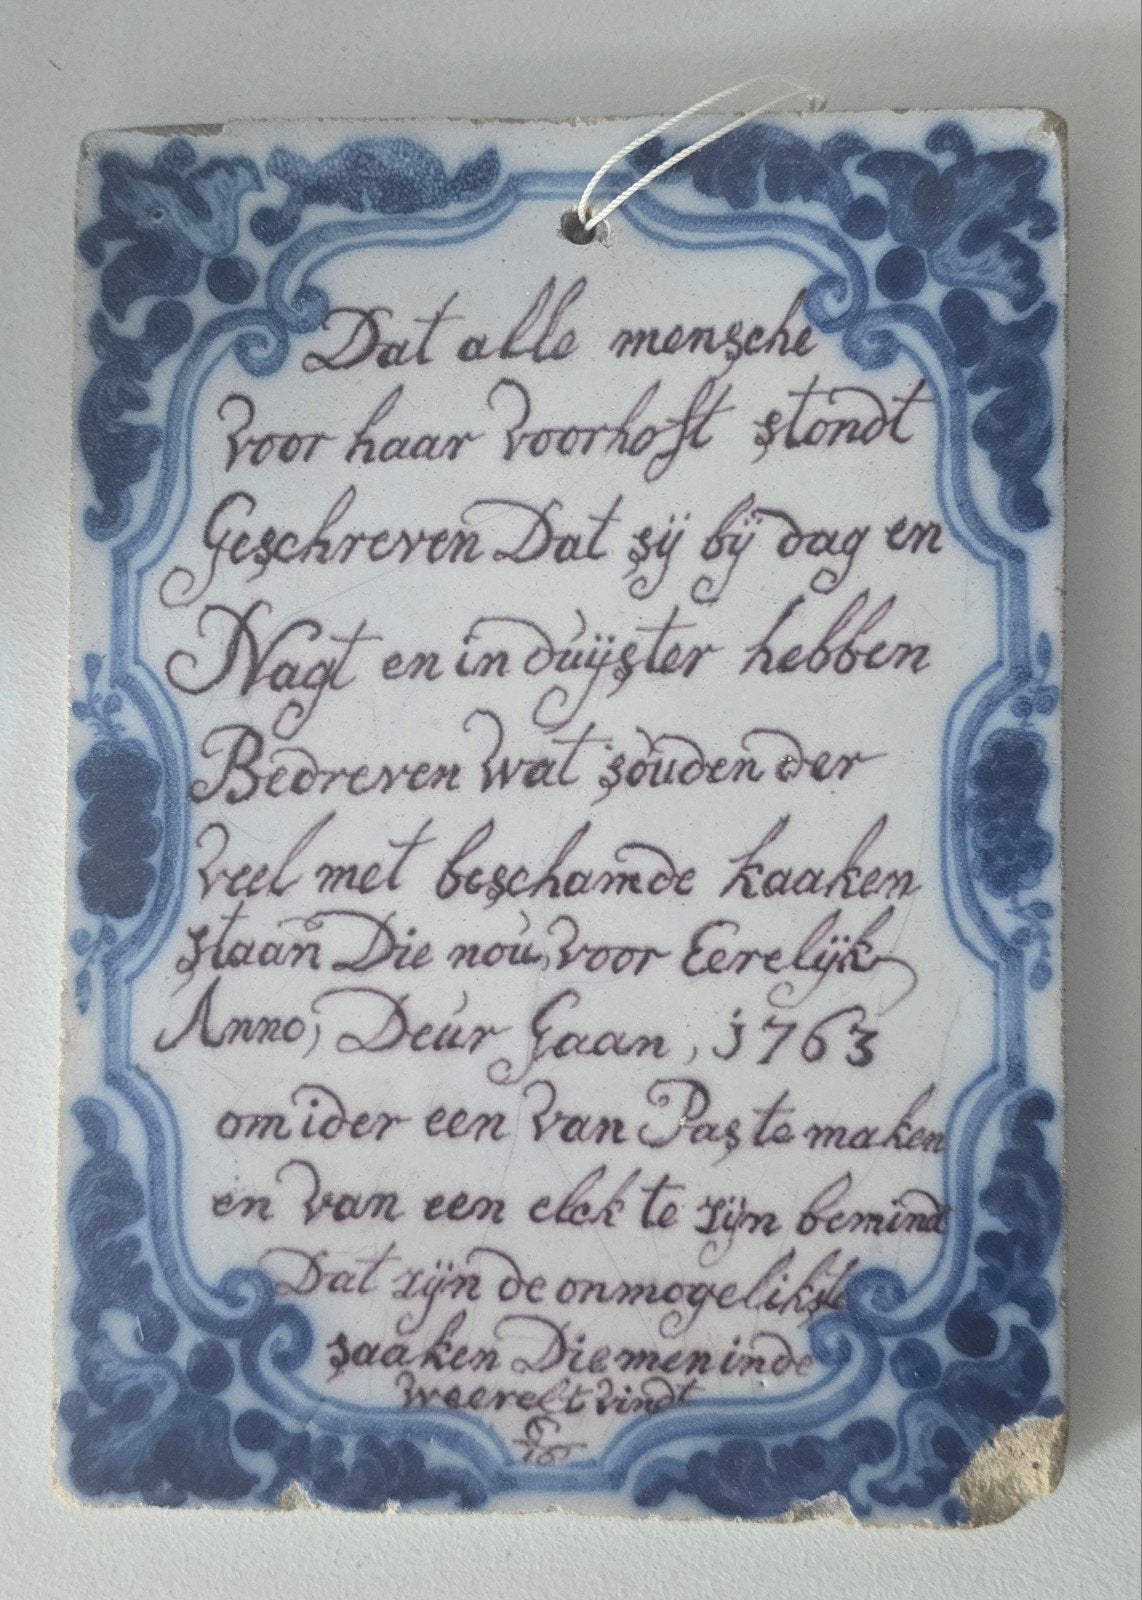 Dat alle mensche
voor haar voorhoft stondt
Geschreven Dat sÿ bÿ dag en
Nagt en in dùÿster hebben
Bedreven wat sòuden der
veel met beschamde kaaken
staan Die noù, voor Eerelÿk
Anno, Deùr Gaan, 1763
om ider een van Paste maken
en van een elck te zÿn bemind
Dat zÿn de onmogelikste
saaken Die men in de
weerelt vindt